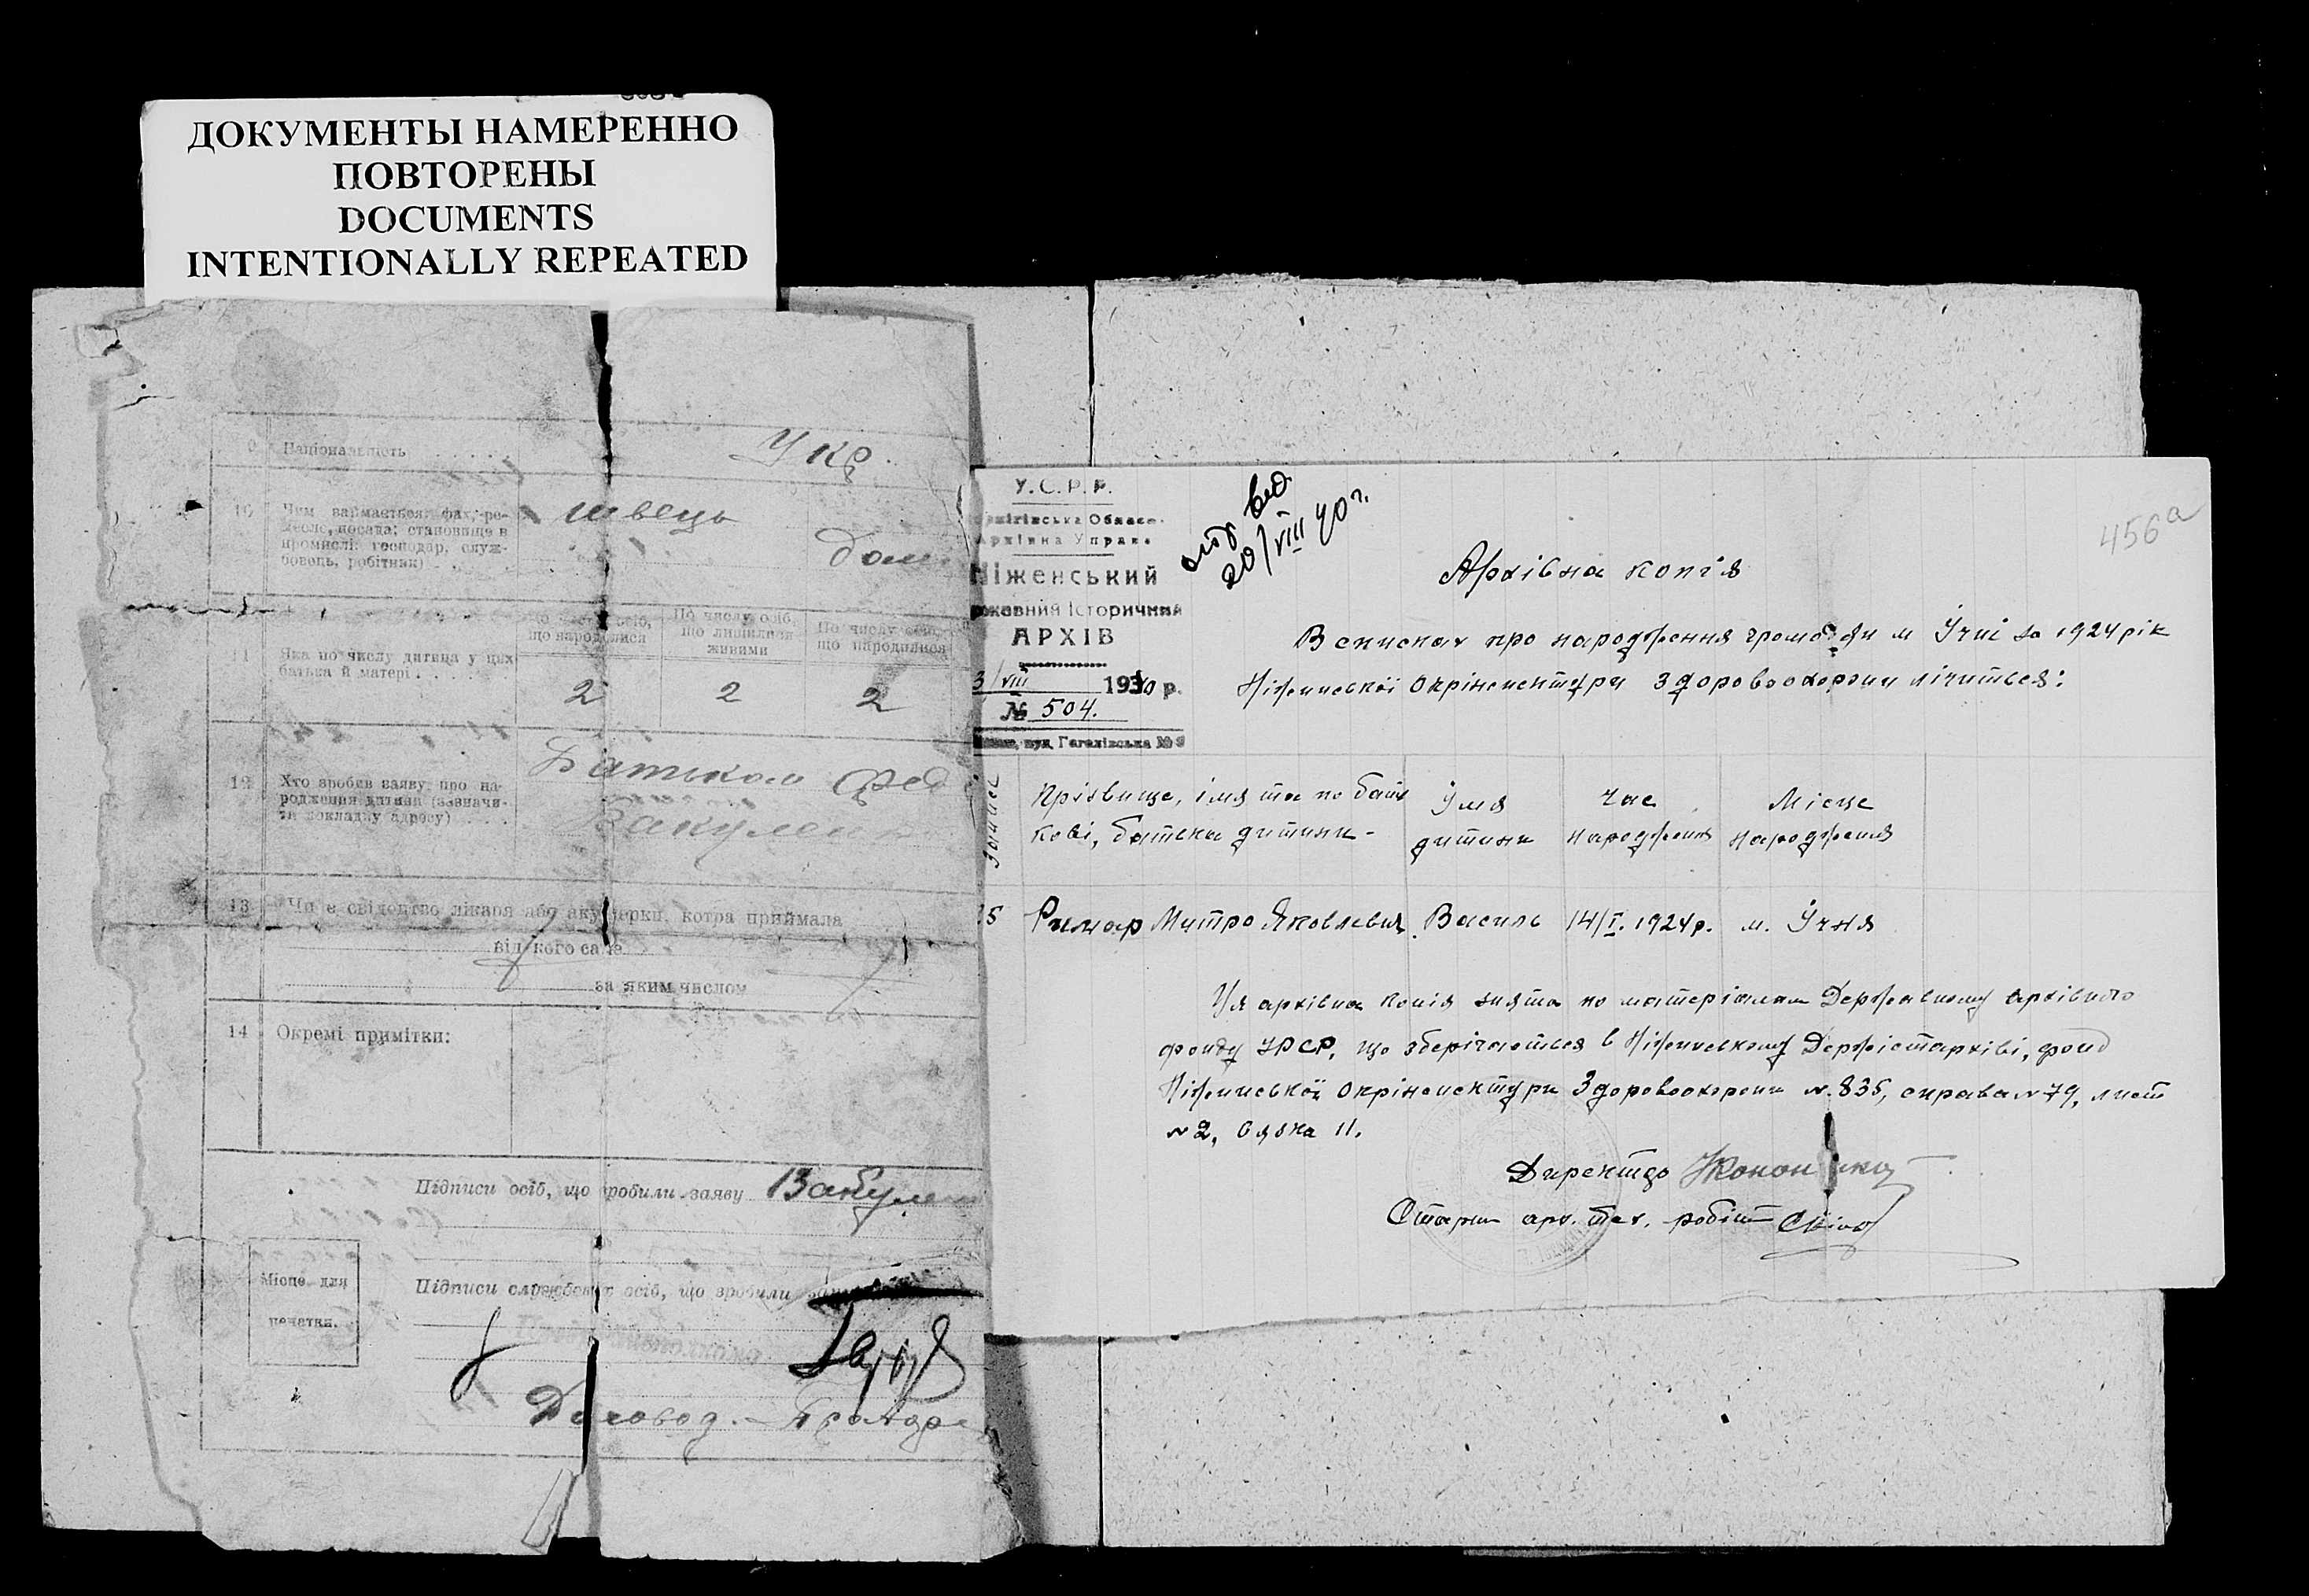 ДОКУМЕНТЫ НАМЕРЕННО
ПОВТОРЕНЫ
DOCUMENTS
INTENTIONALLY REPEATED
9 Національність . . . . . Укр.
10 Чим займається: фах, ре-
месло, посада; становище в
промислі: господар, служ-
бовець, робітник) . . .
швець
дом
11 Яка по числу дитина у цих
батька й матері . . . . .
По числу осіб,
що народилися
По числу осіб,
що лишилися
живими
По числу осіб,
що народилися
2 2 2
12 Хто зробив заяву про на-
родження дитини (зазначи-
ти докладну адресу) . . .
Батьком Фед
Вакулен
13 Чи є свідоцтво лікаря або акушерки, котра приймала
від кого саме
за яким числом
14 Окремі примітки:
Підписи осіб, що зробили заяву Вакулен
Місце для
печатки.
Підписи службових осіб, що зробили
Діловод.
У.С.Р.Р.
Обласн
Архівна Управ
Ніженський
ржавний Історичний
АРХІВ
3/VIII 1940 р.
№ 504.
вул. Гоголівська №
від
20/VIII 40 г.
456а
Архівна копія
В списках про народження громадян м Ічні за 1924 рік
Ніженської Окрінспектури Здоровоохорони лічиться:
Запис
Прізвище, імя та по бать
кові, батька дитини -
Імя
дитини
Час
народження
Місце
народження
5 Римар Митро Яковлевич Василь 14/I. 1924р. м. Ічня
Ця архівна копія знята по матеріалам Державному архівного
фонду УРСР, що зберігаються в Ніженському Держістархіві, фонд
Ніженської Окрінспектури Здоровоохорони №.835, справа №79, лист
№2, вязка 11.
Директор
Старш арх. тех. робіт